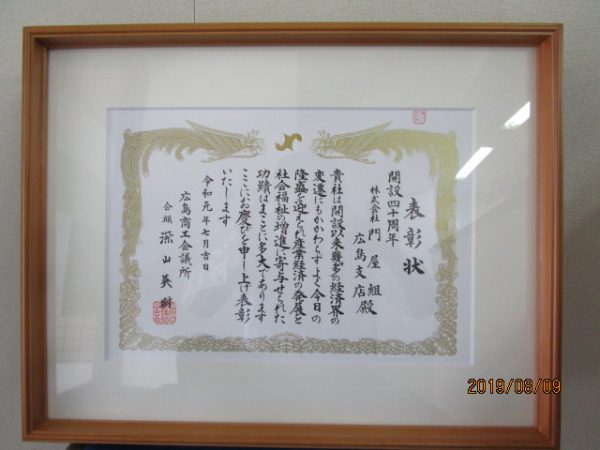 表彰状
開設四十周年
株式会社 門屋組
広島支店殿
貴社は開設以来幾多の経済界の
変遷にもかかわらずよく今日の
隆盛を迎えられ産業経済の発展と
社会福祉の増進に寄与せられた
功績はまことに多大であります
ここにお慶びを申し上げ表彰
いたします
令和元年七月吉日
広島商工会議所
会頭 深山英樹
2019/08/09